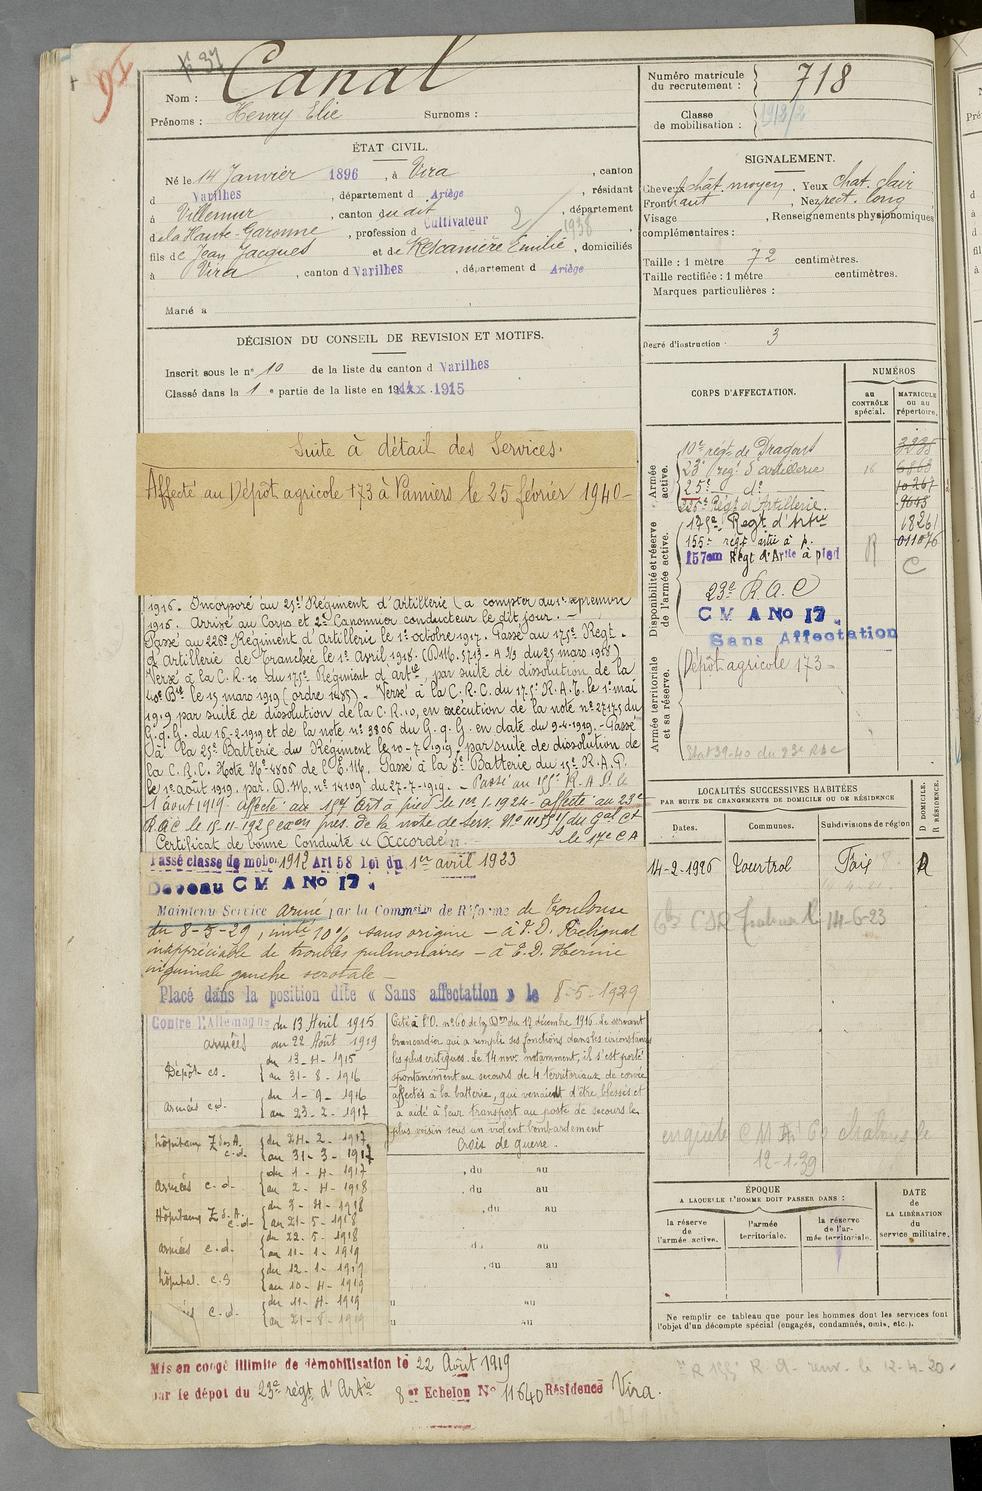 91
N° 37
Nom : Canal
Prénoms : Henry Elie Surnoms :
Numéro matricule du recrutement : 718
Classe de mobilisation : 1912/2
ÉTAT CIVIL.
Né le 14 Janvier 1896, à Vira, canton
d Varilhes, département d Ariège, résidant
à Villemur, canton susdit, département
d e la Haute-Garonne, profession d Cultivateur 2 1938
fils de Jean Jacques et de Rescanière Emilie, domiciliés
à Vira, canton d Varilhes, département d Ariège
Marié à
SIGNALEMENT.
Cheveux chât. moyen, Yeux chat. clair
Front haut, Nez rect. long,
Visage , Renseignements physionomiques
complémentaires :
Taille : 1 mètre 72 centimètres.
Taille rectifiée : 1 mètre centimètres.
Marques particulières :
Degré d'instruction 3
DÉCISION DU CONSEIL DE REVISION ET MOTIFS.
Inscrit sous le n° 10 de la liste du canton d Varilhes
Classé dans la 1e partie de la liste en 19 1915
Suite à détail des Services.
Affecté au Dépôt agricole 173 à Pamiers le 25 février 1940 -
1916. Incorporé au 25e Régiment d'Artillerie (à compter du 1er septembre
1916. Arrivé au Corps et 2e Canonnier conducteur le dit jour. -
Passé au 226e Régiment d'Artillerie le 1er octobre 1917. Passé au 175e Regt.
d'Artillerie de Tranchée le 1er Avril 1918. (D.M. 5713. A 2/3 du 25 mars 1918)
Versé à la C.R. 10 du 175e Régiment d'artie, par suite de dissolution de la
40e Bie le 15 mars 1919 (ordre 1485) - Versé à la C.R.C. du 175e R.A.T. le 1er mai
1919 par suite de dissolution de la C.R. 10, en exécution de la note n° 27175 du
G.Q.G. du 16-2-1919 et de la note n° 3806 du G.Q.G. en date du 9-4-1919. - Passé
à la 25e Batterie du Régiment le 10-7-1919 par suite de dissolution de
la C.R.C. Note N° 4806 de l'E.M. Passé à la 8e Batterie du 15e R.A.P.
le 1er août 1919. par. D.M. n° 14109 du 27-7-1919. - Passé au 155e R.A.P. le
1 aout 1919. affecté au 157 Art à pied le 1er 1.1924 - affecté au 23e
R.A.C le 15-11-1925 en cas de la note de Serv. N° du Gal Ct
Certificat de bonne Conduite « Accordé » le 17e C A
Passé classe de mobon 1912 Art 58 loi du 1er avril 1923
Devenu C M A No 17.
Maintenu Service armé par la Commission de Réforme de Toulouse
du 8-5-29, invté 10% sans origine - à P.D. Reliquat
inappréciable de troubles pulmonaires - à E.D. Hernie
inguinale gauche scrotale -
Placé dans la position dite « Sans affectation » le 8-5-1929
Contre l'Allemagne du 13 Avril 1915
armées au 22 Août 1919
Dépôt cs. du 13-4-1915
au 31-8-1916
armées cd. du 1-9-1916
au 23-2-1917
hôpitaux Z des A. c.d. du 24-2-1917
au 31-3-1917
armées c.d. du 1-4-1917
au 2-4-1918
Hôpitaux Z d. A. c.d. du 3-4-1918
au 21-5-1918
armées c.d. du 22-5-1918
au 11-1-1919
hôpital. c.s du 12-1-1919
au 10-4-1919
c.d. du 11-4-1919
au 21-8-1919
Cité à l'O. n° 60 de la Don du 12 décembre 1916. Le servant
brancardier qui a rempli ses fonctions dans les circonstances
les plus critiques. Le 14 nov. notamment, il s'est porté
spontanément au secours de 4 territoriaux de corvée
affectés à la batterie, qui venaient d'être blessés et
a aidé à leur transport au poste de secours le
plus voisin sous un violent bombardement
Croix de guerre.
, du au
, du au
, du au
du au
, du au
u au
u au
CORPS D'AFFECTATION.
NUMÉROS
au CONTRÔLE spécial.
MATRICULE ou au répertoire.
Armée active.
10e régt de Dragons 3235
23e régt d'artillerie 16 6863
25e - d° - 10261
226e Régt d'Artillerie. 9645
Disponibilité et réserve de l'armée active.
175e Regt d'Artie 18261
155e regt artie à p. R 011076
157em Régt d'Artie à pied C
23e R.A.C
C M A No 17
Sans Affectation
Armée territoriale et sa réserve.
Dépôt agricole 173 -
Etat 39-40 du 23e RAC
LOCALITÉS SUCCESSIVES HABITÉES
PAR SUITE DE CHANGEMENTS DE DOMICILE OU DE RÉSIDENCE
Dates. Communes. Subdivisions de région D DOMICILE. R RÉSIDENCE.
14-2-1926 Tourtrol Foix R
14-6-23
enquête C M A 69 le
12-1-39
ÉPOQUE
A LAQUELLE L'HOMME DOIT PASSER DANS :
la réserve de l'armée active.
l'armée territoriale.
la réserve de l'armée territoriale.
DATE de LA LIBÉRATION du service militaire.
Ne remplir ce tableau que pour les hommes dont les services font
l'objet d'un décompte spécial (engagés, condamnés, omis, etc.).
Mis en congé illimité de démobilisation le 22 Août 1919
par le dépôt du 23e régt d'Artie 8er Echelon No 11640 Résidence Vira.
R 155e R.A. renv. le 12-4-20.